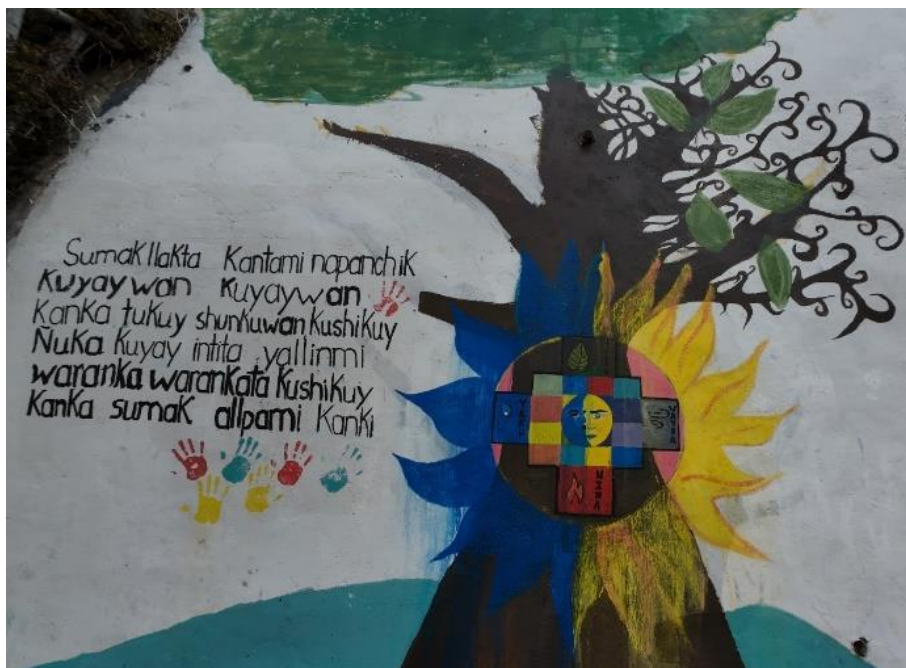 Sumak llakta Kantami napanchik
Kuyaywan Kuyaywan
Kanka tukuy shunkuwan Kushikuy
Ñuka Kuyay intita yallinmi
waranka warankata Kushikuy
Kanka sumak allpami Kanki
YAKU
WAYRA
NINA